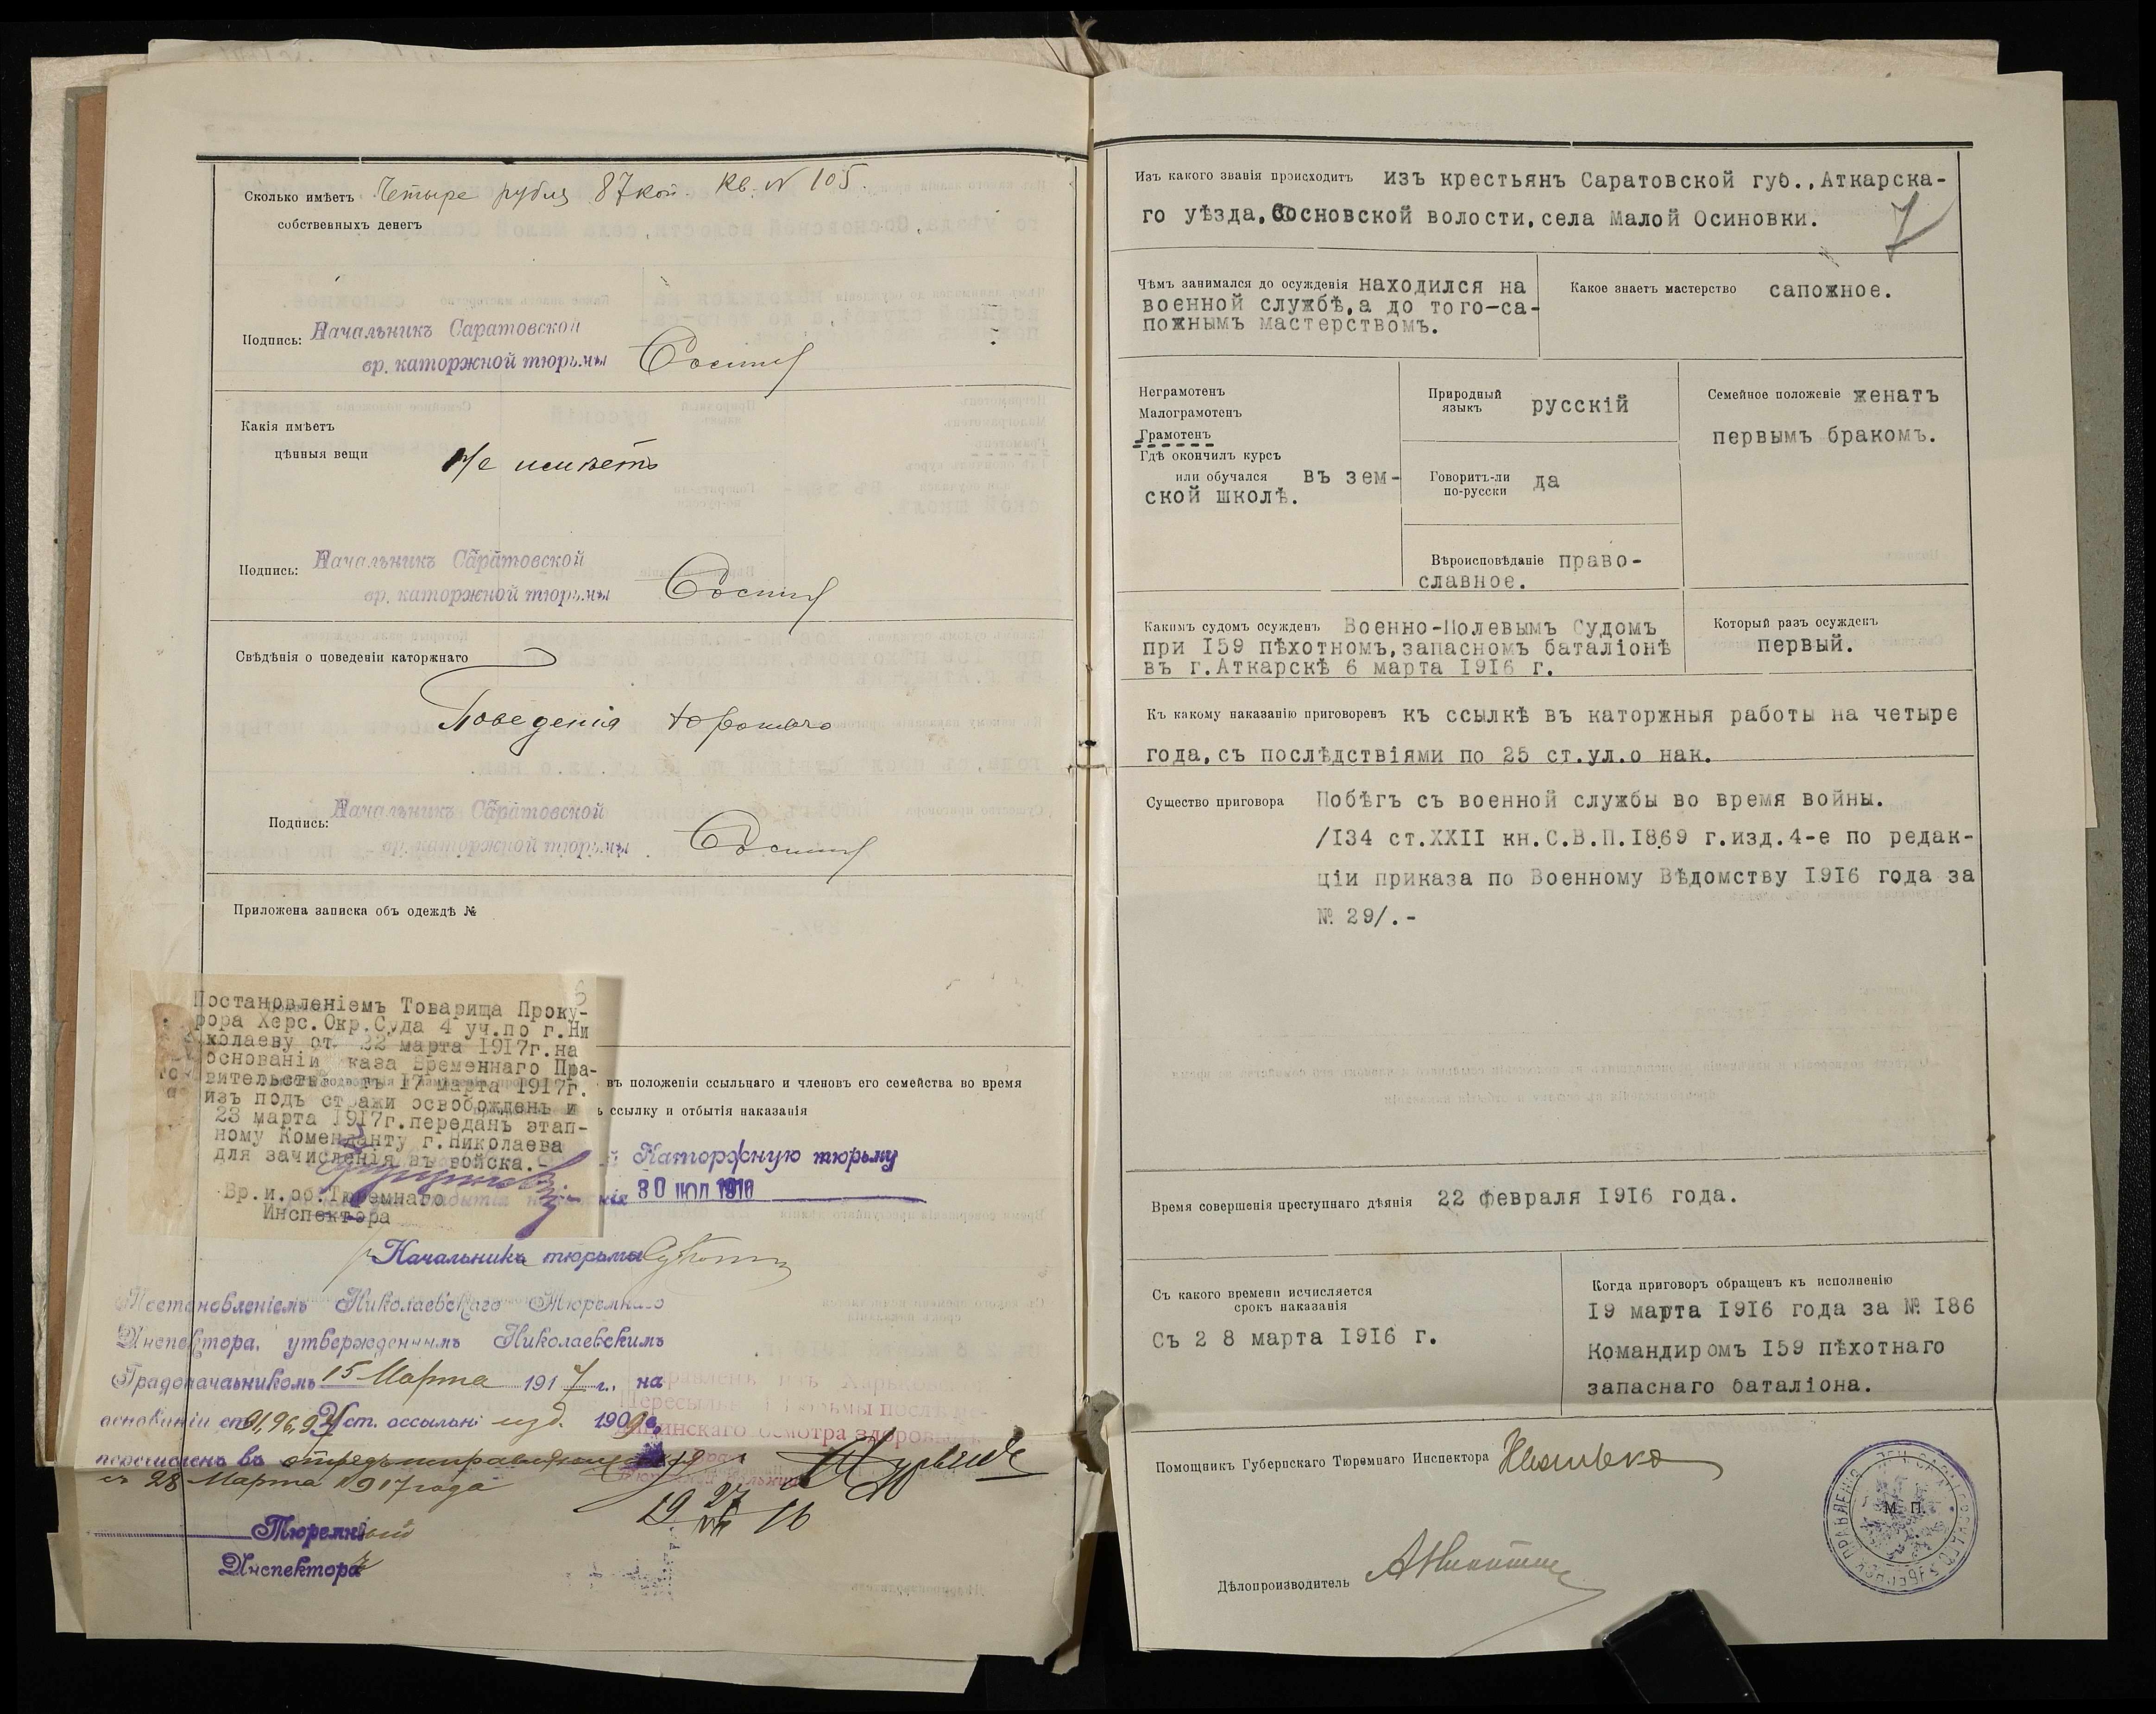 Сколько имѣетъ Четыре рубля 87 коп. Кв. № 105.
собственныхъ денегъ
Подпись: Начальникъ Саратовской
вр. каторжной тюрьмы
Какія имѣетъ
цѣнныя вещи Не имѣетъ
Подпись: Начальникъ Саратовской
вр. каторжной тюрьмы
Свѣдѣнія о поведеніи каторжнаго
Поведенія хорошаго
Подпись: Начальникъ Саратовской
вр. каторжной тюрьмы
Приложена записка объ одеждѣ №
Постановленіемъ Товарища Проку-
рора Херс.Окр.Суда 4 уч.по г.Ни
колаеву от 22 марта 1917г.на
основаніи каза Временнаго Пра-
вительств тъ 17 марта 1917г.
изъ подъ стражи освобожденъ и
23 марта 1917г.переданъ этап-
ному Коменданту г.Николаева
для зачисленія въ войска.-
Вр.и.об.Тюремнаго
Инспектора
въ положеніи ссыльнаго и членовъ его семейства во время
ссылку и отбытія наказанія
Каторжную тюрьму
30 ИЮЛ 1916
Начальникъ тюрьмы
Постановленіемъ Николаевскаго Тюремнаго
Инспектора, утвержденнымъ Николаевскимъ
Градоначальникомъ 15 Марта 1917 г., на
основаніи ст. 91,96,97 Уст. о ссыльн. изд. 1909 г.
перечисленъ въ отрядъ исправляющихся
съ 28 Марта 1917 года
осмотра
19 27/VII 16
Тюремный
Инспекторъ
Изъ какого званія происходитъ изъ крестьянъ Саратовской губ.,Аткарска-
го уѣзда,Сосновской волости,села Малой Осиновки.
7
Чѣмъ занимался до осужденія находился на
военной службѣ,а до того-са-
пожнымъ мастерствомъ.
Какое знаетъ мастерство сапожное.
Неграмотенъ
Малограмотенъ
Грамотенъ
Гдѣ окончилъ курсъ
или обучался въ зем-
ской школѣ.
Природный
языкъ русскій
Говоритъ-ли
по-русски да
Вѣроисповѣданіе право-
славное.
Семейное положеніе женатъ
первымъ бракомъ.
Какимъ судомъ осужденъ Военно-Полевымъ Судомъ
при 159 пѣхотномъ,запасномъ баталіонѣ
въ г.Аткарскѣ 6 марта 1916 г.
Который разъ осужденъ
первый.
Къ какому наказанію приговоренъ къ ссылкѣ въ каторжныя работы на четыре
года,съ послѣдствіями по 25 ст.ул.о нак.
Существо приговора Побѣгъ съ военной службы во время войны.
/134 ст.XXII кн.С.В.П.1869 г.изд.4-е по редак-
ціи приказа по Военному Вѣдомству 1916 года за
№ 29/.-
Время совершенія преступнаго дѣянія 22 февраля 1916 года.
Съ какого времени исчисляется
срокъ наказанія
Съ 2 8 марта 1916 г.
Когда приговоръ обращенъ къ исполненію
19 марта 1916 года за № 186
Командиромъ 159 пѣхотнаго
запаснаго баталіона.
Помощникъ Губернскаго Тюремнаго Инспектора
М. П.
Дѣлопроизводитель